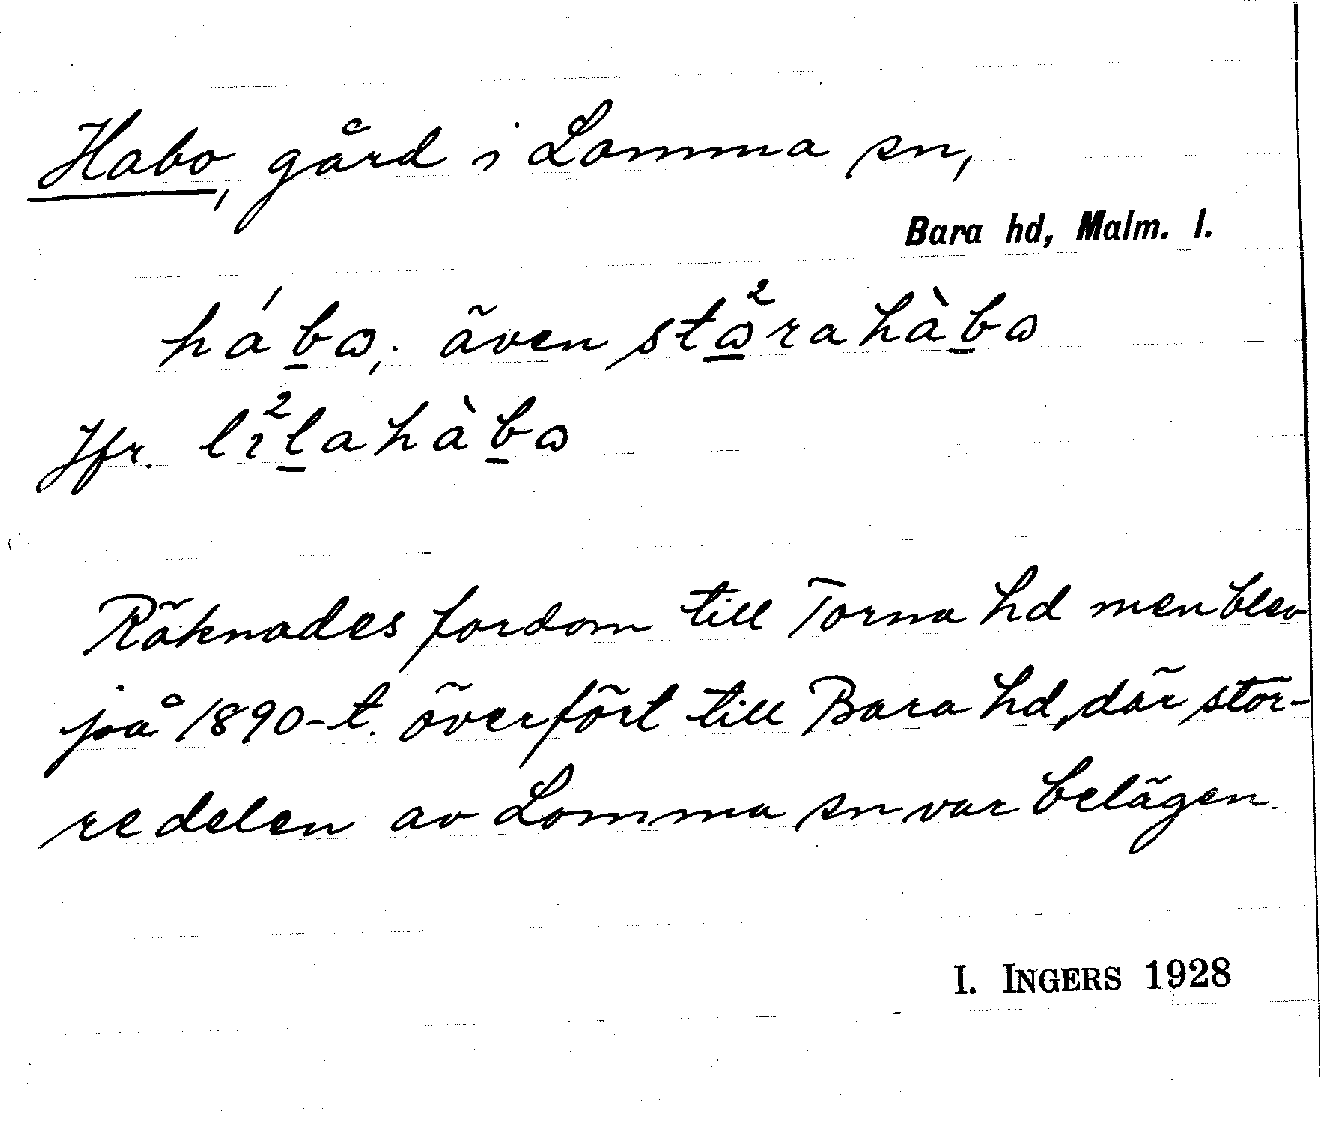 Habo, gård i Lomma sn,
Bara hd, Malm. l.
háb̲ɷ; även stɷ̲²rahàb̲ɷ
Jfr. lı²l̲ahàb̲ɷ
Räknades fordom till Torna hd men blev
på 1890-t. överfört till Bara hd, där stör-
re delen av Lomma sn var belägen.
I. INGERS 1928